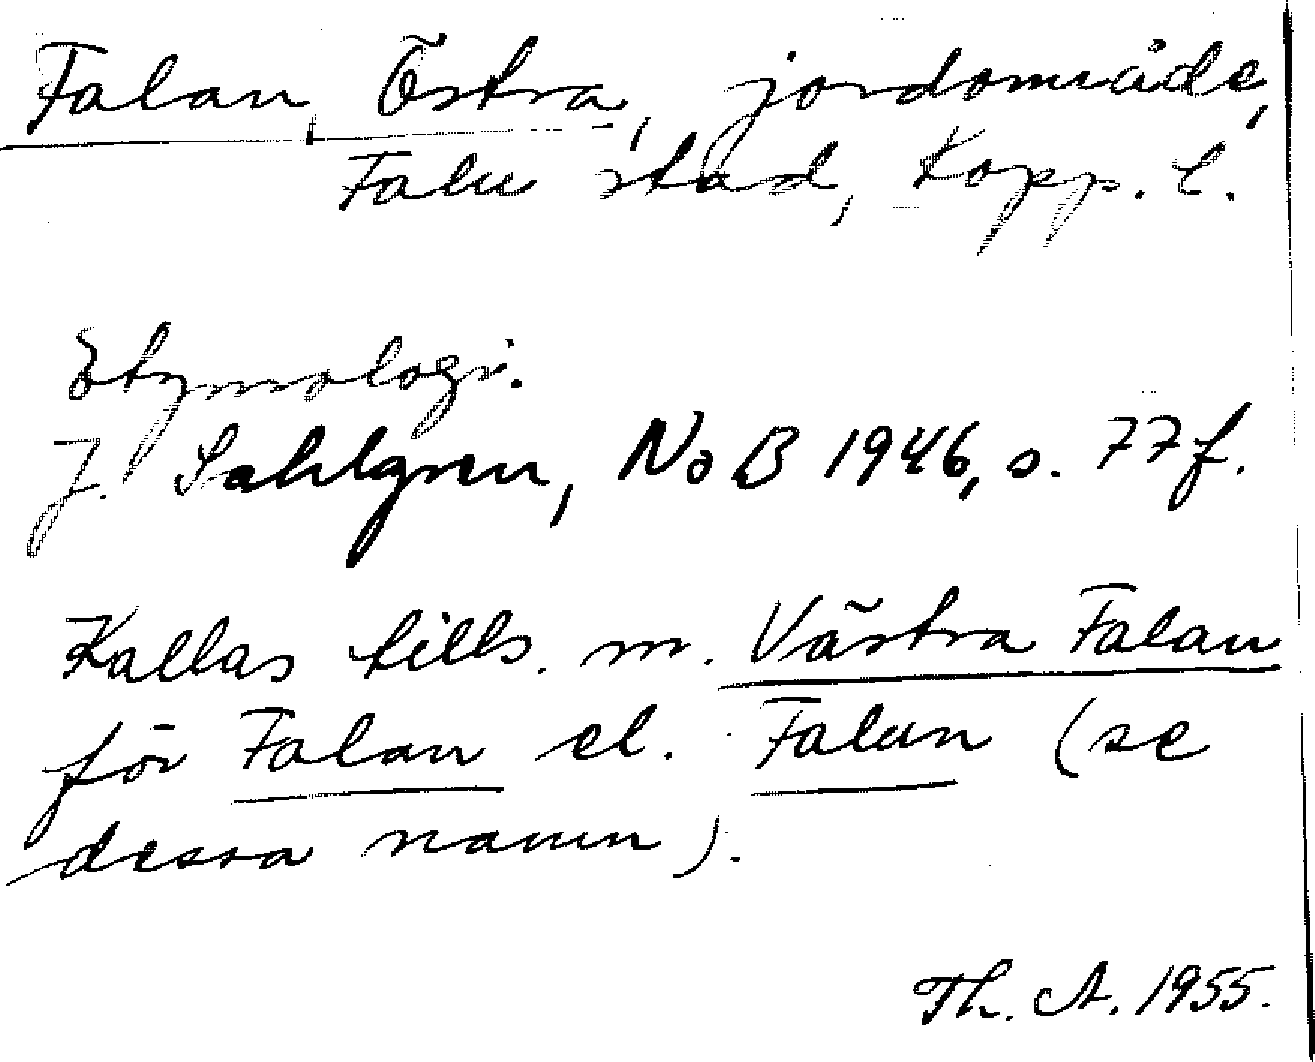 Falan, Östra, jordområde,
Falu stad, Kopp. l.
Etymologi.
J. Sahlgren, NoB 1946, s. 77 f.
Kallas tills. m. Västra Falan
för Falan el. Falun (se
dessa namn).
Th. A. 1955.